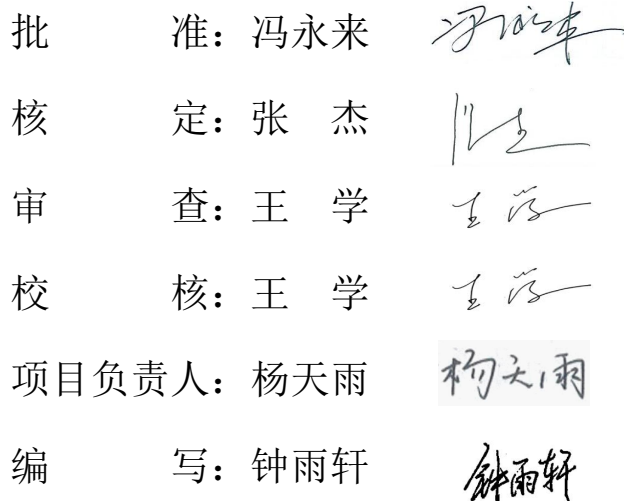 批 准：冯永来 冯永来
核 定：张 杰
审 查：王 学 王学
校 核：王 学 王学
项目负责人：杨天雨 杨天雨
编 写：钟雨轩 钟雨轩